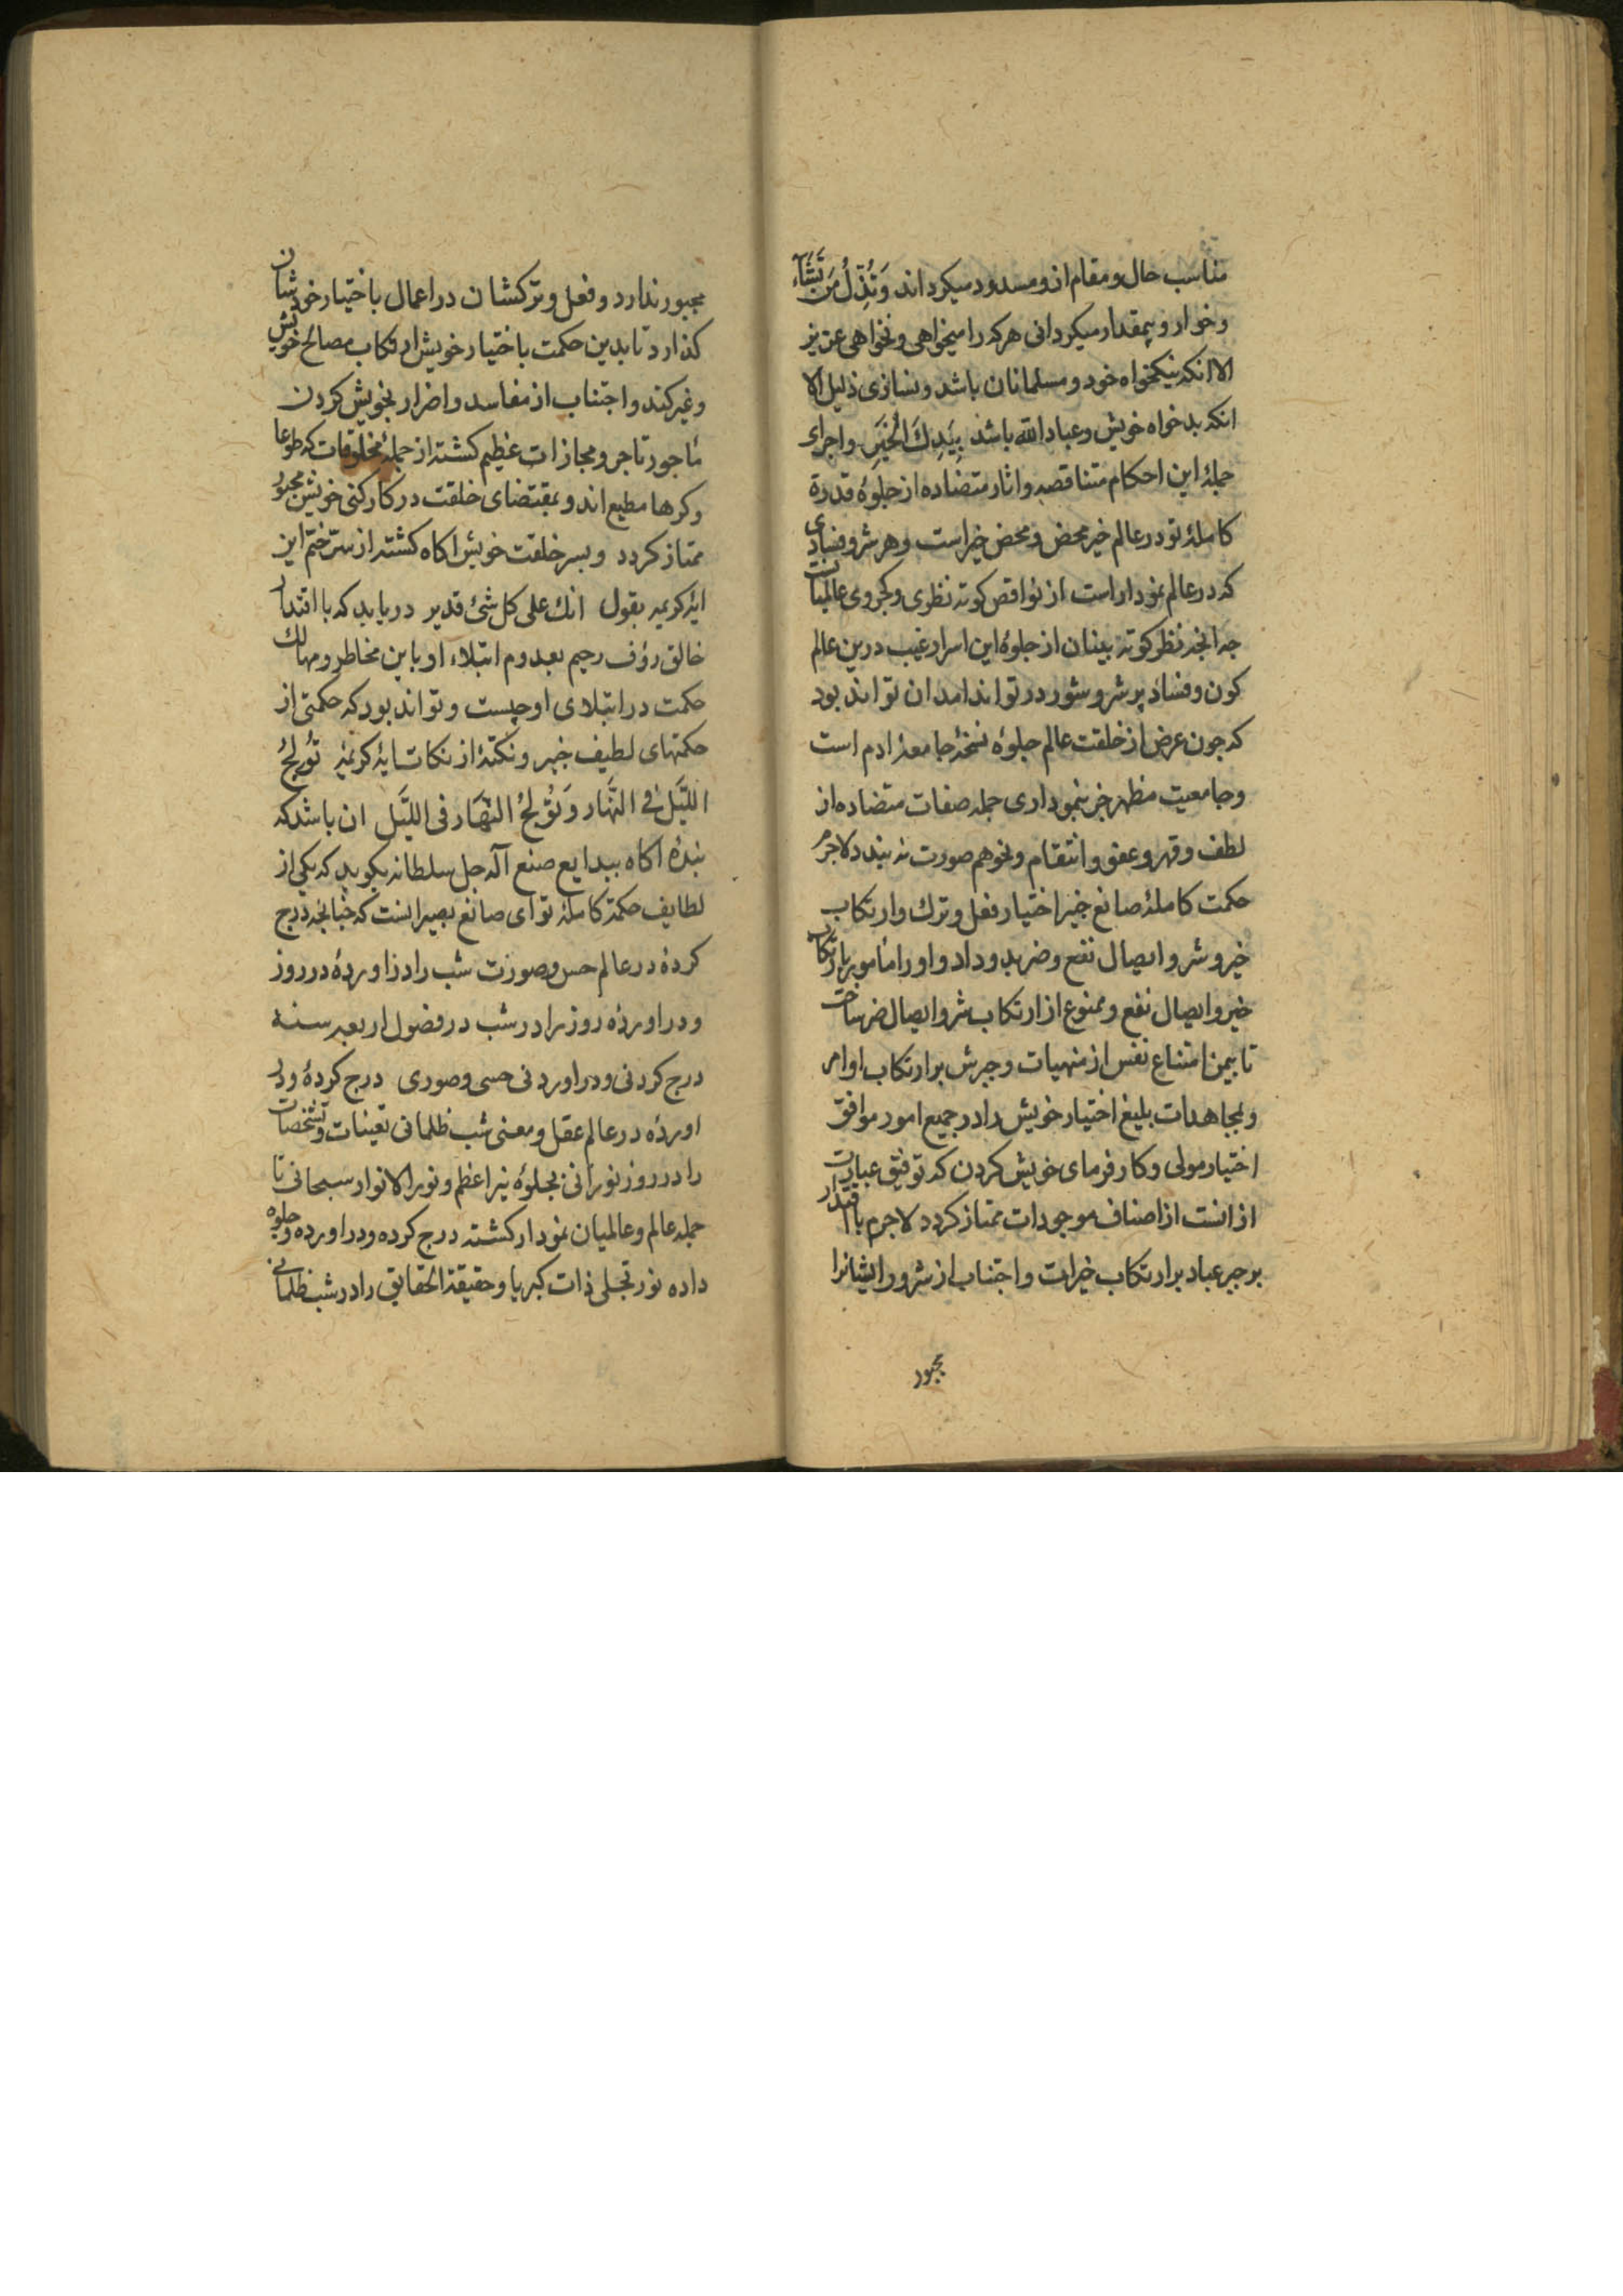 مناسب حال و مقام از و مسدود میکرداند وَتُذِلُّ مَن تَشَاءُ
و خوار و بیمقدار میکردانی هرکه را میخواهی و نخواهی عزیز
الا انکه نیکخواه خود و مسلمانان باشد و نسازی ذلیل الا
انکه بدخواه خویش و عباد الله باشد بِیَدِكَ الْخَیْرِ و اجرای
جملۀ این احکام متناقصه و اثار متضاده از جلوۀ قدرة
کاملۀ تو در عالم خیر محض و محض خیر است و هر شر و فسادی
که در عالم نمودار است از نواقص کوته نظری و کجروی عالمیان
چه انچه نظر کوته بینان از جلوۀ این اسرار غیب درین عالم
کون و فساد پر شر و شور در تواند امد ان تواند بود
که چون عرض از خلقت عالم جلوۀ نسخۀ جامعۀ ادم است
و جامعیت مظهر جز بنموداری جمله صفات متضاده از
لطف و قهر و عفو و انتقام و نحوهم صورت نه بندد لاجرم
حکمت کاملۀ صانع خبیر اختیار فعل و ترك و ارتکاب
خیر و شر و ایصال نفع و ضر بدو داد و او را مأمور بارتکاب
خیر و ایصال نفع و ممنوع از ارتکاب شر و ایصال ضر ساخت
تا بیمن امتناع نفس از منهیات و جبرش بر ارتکاب اوامر
و بمجاهدات بلیغ اختیار خویش را در جمیع امور موافق
اختیار مولی و کارفرمای خویش کردن که توفیق عبارت
از انست از اصناف موجودات ممتاز کردد لاجرم با اقتدار
بر جبر عباد بر ارتکاب خیرات و اجتناب از شرور ایشانرا
مجبور
مجبور ندارد و فعل و ترکشان در اعمال باختیار خودشان
کذارد تا بدین حکمت باختیار خویش ارتکاب مصالح خویش
و غیر کند و اجتناب از مفاسد و اضرار بخویش کردن
مأجور تاجر و مجازات عظیم کشته از جملۀ مخلوقات که طوعا
و کرها مطیع اند و بمقتضای خلقت در کارکنی خویش مجبور
ممتاز کردد و بسر خلقت خویش اکاه کشته از سرّ ختم این
ایۀ کریمه بقول انك علی کل شئ قدیر دریابد که با اقتدار
خالق رؤف رحیم بعدوم ابتلاء او باین مخاطر و مهالك
حکمت در ابتلای او چیست و تواند بود که حکمتی از
حکمتهای لطیف خبیر و نکتۀ از نکات ایۀ کریمۀ تُولِجُ
اللَّیْلَ فی النَّهَار وَتُولِجُ النَّهَارَ فی اللَّیْلِ ان باشد که
بندۀ اکاه ببدایع صنع آله جل سلطانه بکوید که یکی از
لطایف حکمة کاملۀ تو ای صانع بصیر انست که چنانچه درج
کردۀ در عالم حس و صورت شب را و در اوردۀ در روز
و در اوردۀ روز را در شب در فصول اربعۀ سنه
درج کردنی و در اوردنی حسی و صوری درج کردۀ و در
اوردۀ در عالم عقل و معنی شب ظلمانی تعینات و تشخصات
را در روز نورانی بجلوۀ نیر اعظم و نور الانوار سبحانی تا
جمله عالم و عالمیان نمودار کشته درج کرده و در اورده و جلوه
داده نور تجلی ذات کبریا و حقیقة الحقایق را در شب ظلمانی